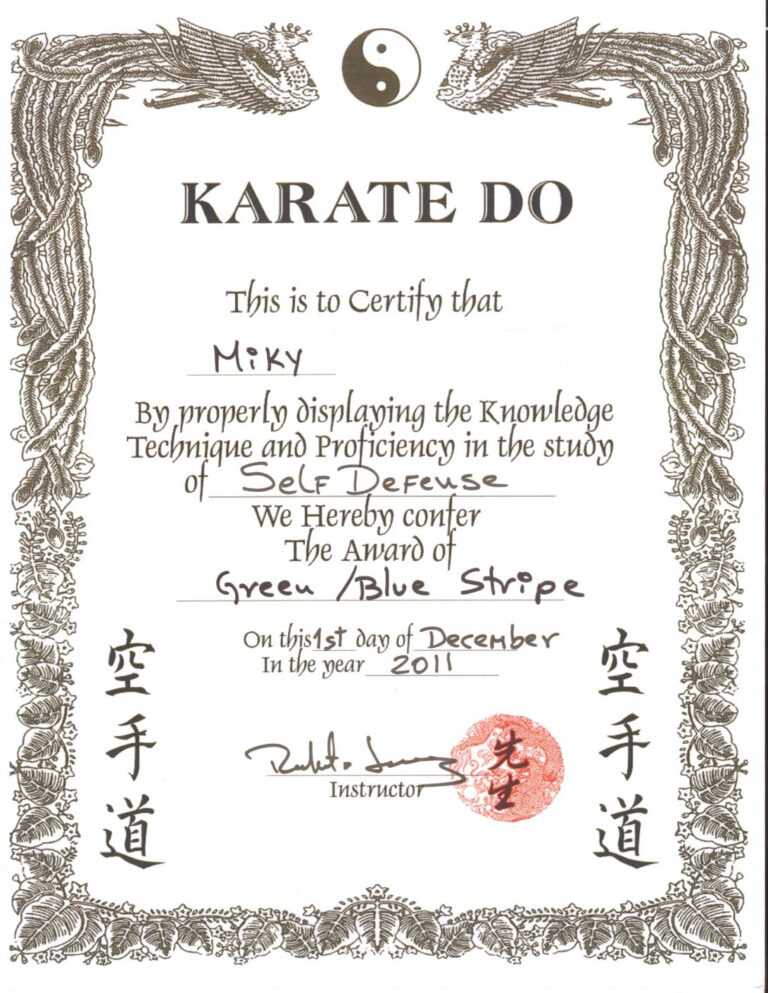 KARATE DO
This is to Certify that
Miky
By properly displaying the Knowledge
Technique and Proficiency in the study
of Self Defense
We Hereby confer
The Award of
Green /Blue Stripe
On this 1st day of December
In the year 2011
空手道
空手道
先生
Instructor